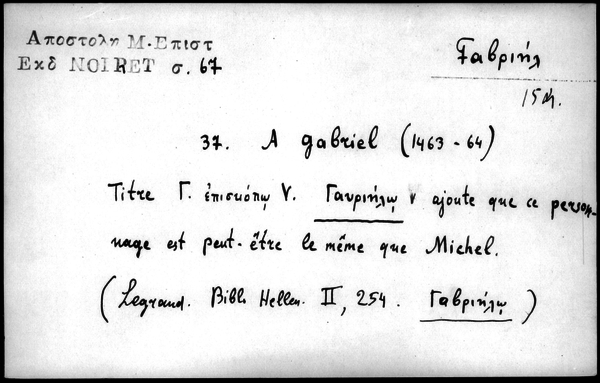 Αποστολη Μ. Επιστ
Εκδ NOIRET σ. 67
Γαβριήλ
15 αι.
37. A gabriel (1463-64)
Titre Γ. ἐπισκόπῳ V. Γαυριήλῳ v ajoute que ce person-
nage est peut-être le même que Michel.
(Legrand. Bibl. Hellen. II, 254. Γαβριήλῳ)